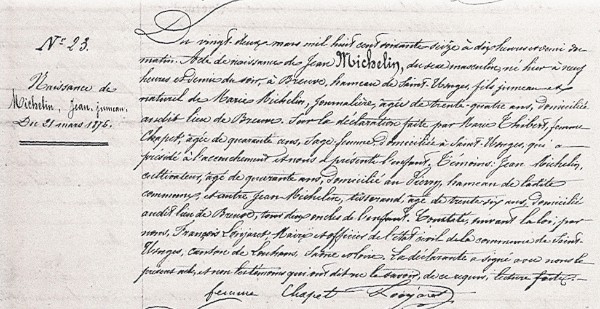 N° 23.
Naissance de
Michelin, Jean, jumeau.
Du 21 mars 1876.
Du vingt deux mars mil huit cent soixante seize à dix heures et demi du
matin. Acte de naissance de Jean Michelin, du sexe masculin, né hier à neuf
heures et demie du soir, à Breuve, hameau de Saint-Usuges, fils jumeau et
naturel de Marie Michelin, journalière, âgée de trente quatre ans, domiciliée
audit lieu de Breuve. Sur la déclaration faite par Marie Thibert, femme
Chapet, âgée de quarante ans, sage femme, domiciliée à Saint-Usuges, qui a
procédé à l'accouchement et nous a présenté l'enfant. Témoins: Jean Michelin,
cultivateur, âgé de quarante ans, domicilié au hameau de ladite
commune, et autre Jean Michelin, tisserand, âgé de trente six ans, domicilié
audit lieu de Breuve, tous deux oncles de l'enfant. Constaté, suivant la loi, par
nous, François Maire et officier de l'état civil de la commune de Saint-
Usuges, canton de Louhans, Saône et Loire. La déclarante a signé avec nous le
présent acte, et non les témoins qui ont dit ne le savoir, de ce requis, lecture faite.
femme Chapet